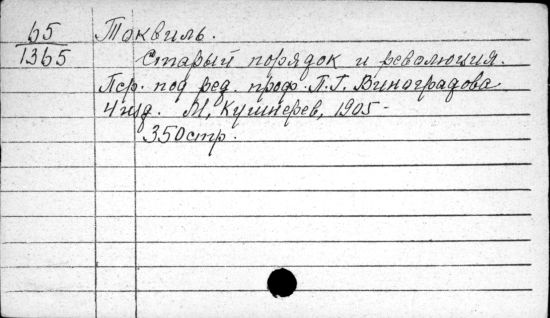 65 Токвиль.
1365 Старый порядок и революция.
Пер. под ред. проф. П.Г. Виноградова
4 изд. М, Кушнерев, 1905-
350 стр.